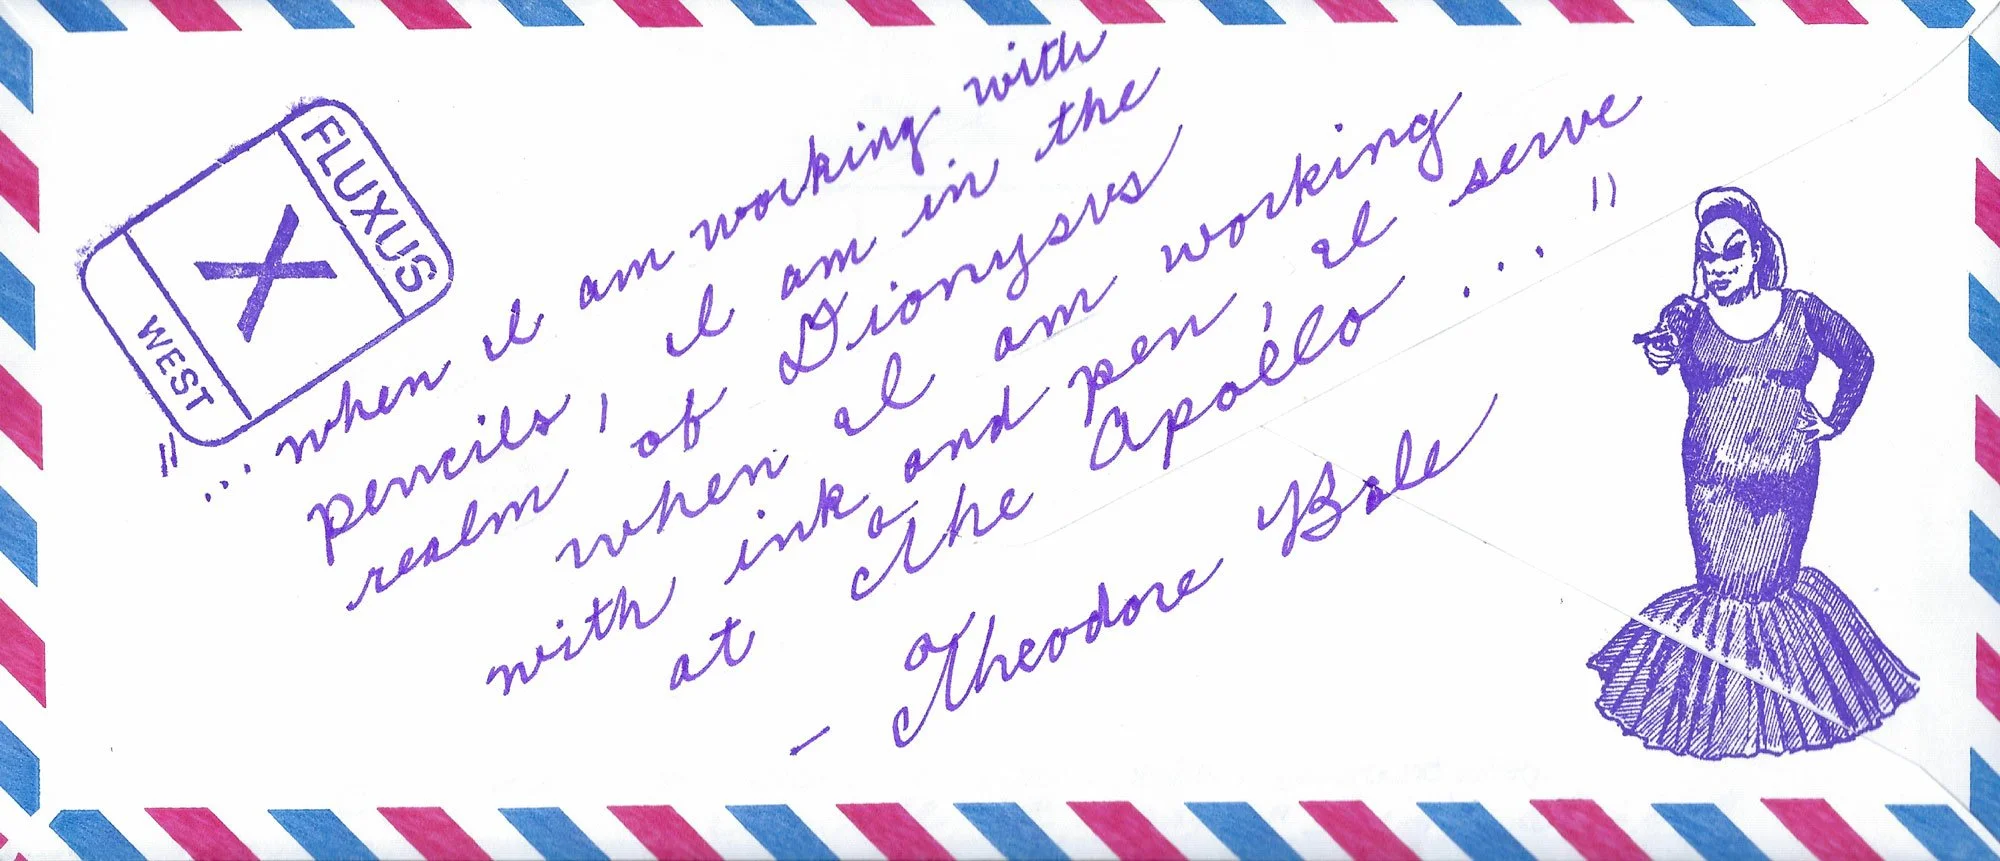 FLUXUS
X
WEST
"... when I am working with
pencils, I am in the
realm of Dionysus
when I am working
with ink and pen, I serve
at The Apollo ..."
- Theodore Bale